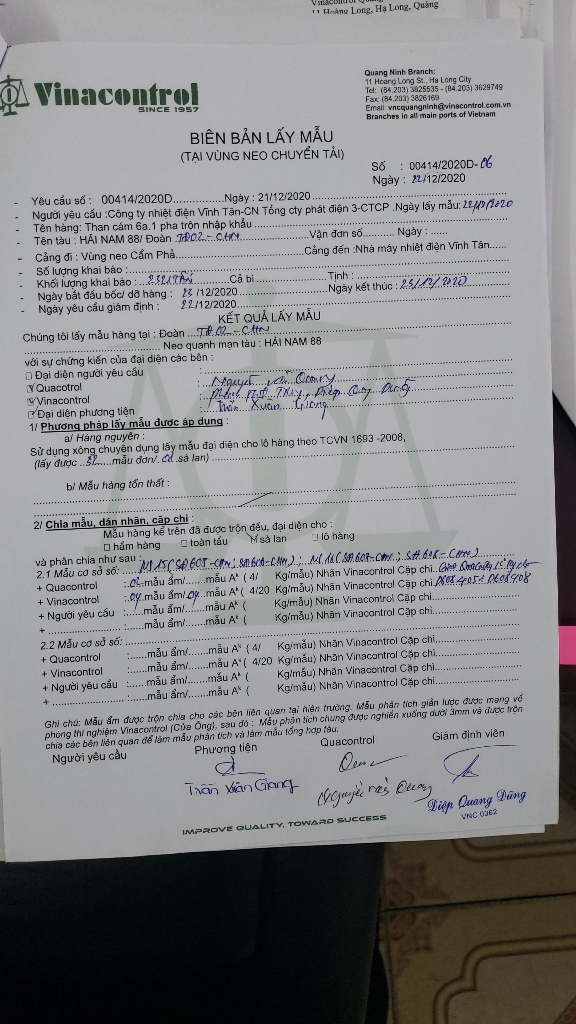 11 Hoàng Long, Hạ Long, Quảng
Vinacontrol
SINCE 1957
Quang Ninh Branch:
11 Hoang Long St., Ha Long City
Tel: (84.203) 3825535 - (84.203) 3629749
Fax: (84.203) 3826169
Email: vncquangninh@vinacontrol.com.vn
Branches in all main ports of Vietnam
BIÊN BẢN LẤY MẪU
(TẠI VÙNG NEO CHUYỂN TẢI)
Số : 00414/2020D-06
Ngày : 22/12/2020
- Yêu cầu số : 00414/2020D Ngày : 21/12/2020
- Người yêu cầu :Công ty nhiệt điện Vĩnh Tân-CN Tổng cty phát điện 3-CTCP .Ngày lấy mẫu: 22/12/2020
- Tên hàng: Than cám 6a.1 pha trộn nhập khẩu
- Tên tàu : HẢI NAM 88/ Đoàn TĐ02-CHN Vận đơn số Ngày :
- Cảng đi : Vùng neo Cẩm Phả Cảng đến :Nhà máy nhiệt điện Vĩnh Tân
- Số lượng khai báo :
- Khối lượng khai báo : 2321 Tấn Cả bì Tịnh :
- Ngày bắt đầu bốc/ dỡ hàng : 23/12/2020 Ngày kết thúc : 23/12/2020
- Ngày yêu cầu giám định : 22/12/2020
KẾT QUẢ LẤY MẪU
Chúng tôi lấy mẫu hàng tại : Đoàn TĐ02-CHN
Neo quanh mạn tàu : HẢI NAM 88
với sự chứng kiến của đại diện các bên :
Đại diện người yêu cầu :
Quacotrol :
Vinacontrol : Diệp Quang Dũng
Đại diện phương tiện : Trần Xuân Giang
1/ Phương pháp lấy mẫu được áp dụng :
a/ Hàng nguyên :
Sử dụng xông chuyên dụng lấy mẫu đại diện cho lô hàng theo TCVN 1693 -2008,
(lấy được 32 mẫu đơn/ sà lan)
b/ Mẫu hàng tổn thất :
2/ Chia mẫu, dán nhãn, cặp chì :
Mẫu hàng kể trên đã được trộn đều, đại diện cho :
hầm hàng toàn tầu sà lan lô hàng
và phân chia như sau :
2.1 Mẫu cơ sở số: M15(SA605-CHN; SA606-CHN); M16(SA607-CHN; SA608-CHN)
+ Quacontrol : 02 mẫu ẩm/ mẫu Aᵏ ( 4/ Kg/mẫu) Nhãn Vinacontrol Cặp chì
+ Vinacontrol : 04 mẫu ẩm/ 04 mẫu Aᵏ ( 4/20 Kg/mẫu) Nhãn Vinacontrol Cặp chì
+ Người yêu cầu : mẫu ẩm/ mẫu Aᵏ ( Kg/mẫu) Nhãn Vinacontrol Cặp chì
+ : mẫu ẩm/ mẫu Aᵏ ( Kg/mẫu) Nhãn Vinacontrol Cặp chì
2.2 Mẫu cơ sở số:
+ Quacontrol : mẫu ẩm/ mẫu Aᵏ ( 4/ Kg/mẫu) Nhãn Vinacontrol Cặp chì
+ Vinacontrol : mẫu ẩm/ mẫu Aᵏ ( 4/20 Kg/mẫu) Nhãn Vinacontrol Cặp chì
+ Người yêu cầu : mẫu ẩm/ mẫu Aᵏ ( Kg/mẫu) Nhãn Vinacontrol Cặp chì
+ : mẫu ẩm/ mẫu Aᵏ ( Kg/mẫu) Nhãn Vinacontrol Cặp chì
Ghi chú: Mẫu ẩm được trộn chia cho các bên liên quan tại hiện trường. Mẫu phân tích giản lược được mang về
phòng thí nghiệm Vinacontrol (Cửa Ông), sau đó : Mẫu phân tích chung được nghiền xuống dưới 3mm và được trộn
chia các bên liên quan để làm mẫu phân tích và làm mẫu tổng hợp tàu.
Người yêu cầu Phương tiện Quacontrol Giám định viên
Trần Xuân Giang
Diệp Quang Dũng
VNC 0362
IMPROVE QUALITY, TOWARD SUCCESS